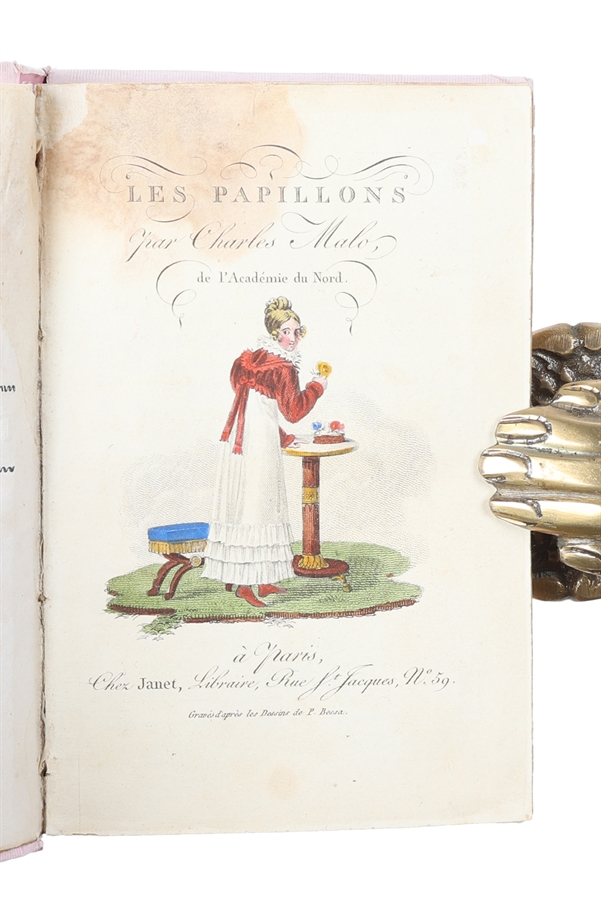 LES PAPILLONS
par Charles Malo,
de l'Académie du Nord.
à Paris,
Chez Janet, Libraire, Rue St. Jacques, No. 59.
Gravés d'après les Dessins de P. Bessa.